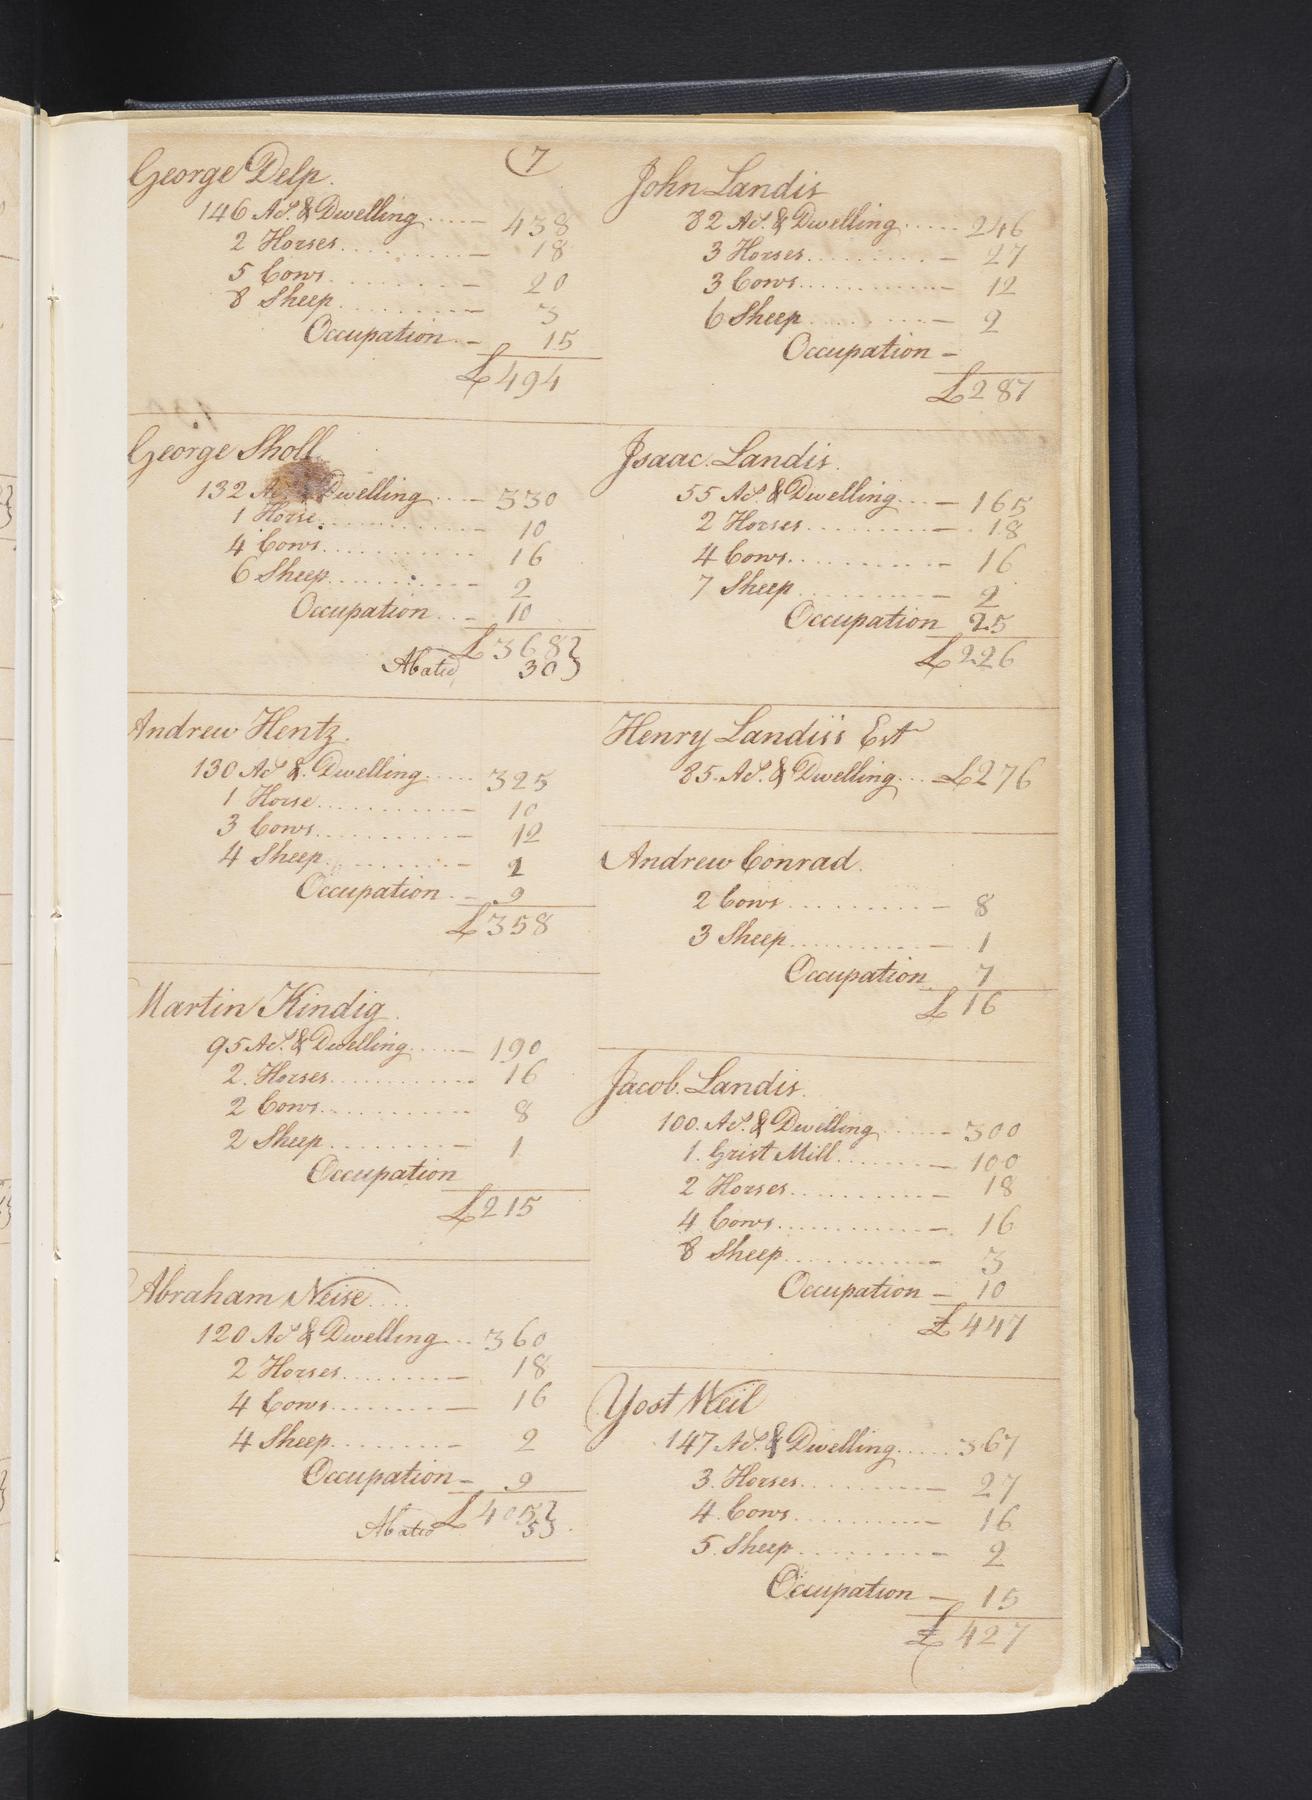 7
George Delp.
146 Acs. & Dwelling ..... 438
2 Horses ..... 18
5 Cows ..... 20
8 Sheep ..... 3
Occupation ..... 15
£494
George Sholl
132 Acs. & Dwelling ..... 330
1 Horse ..... 10
4 Cows ..... 16
6 Sheep ..... 2
Occupation ..... 10
£368}
Abated 30}
Andrew Hentz.
130 Acs & Dwelling ..... 325
1 Horse ..... 10
3 Cows ..... 12
4 Sheep ..... 2
Occupation ..... 9
£358
Martin Kindig.
95 Acs. & Dwelling ..... 190
2 Horses ..... 16
2 Cows ..... 8
2 Sheep ..... 1
Occupation
£215
Abraham Neise ....
120 Acs & Dwelling .. 360
2 Horses ..... 18
4 Cows ..... 16
4 Sheep ..... 2
Occupation — 9
£405}
Abated 5}
John Landis
82 Acs. & Dwelling ..... 246
3 Horses ..... 27
3 Cows ..... 12
6 Sheep ..... 2
Occupation —
£287
Isaac Landis.
55 Acs. & Dwelling ..... 165
2 Horses ..... 18
4 Cows ..... 16
7 Sheep ..... 2
Occupation 25
£226
Henry Landis's Est
85 Acs. & Dwelling ... £276
Andrew Conrad.
2 Cows ..... 8
3 Sheep ..... 1
Occupation 7
£16
Jacob Landis.
100 Acs. & Dwelling ..... 300
1 Grist Mill ..... 100
2 Horses ..... 18
4 Cows ..... 16
8 Sheep ..... 3
Occupation — 10
£447
Yost Weil
147 Acs. & Dwelling ..... 367
3 Horses ..... 27
4 Cows ..... 16
5 Sheep ..... 2
Occupation — 15
£427